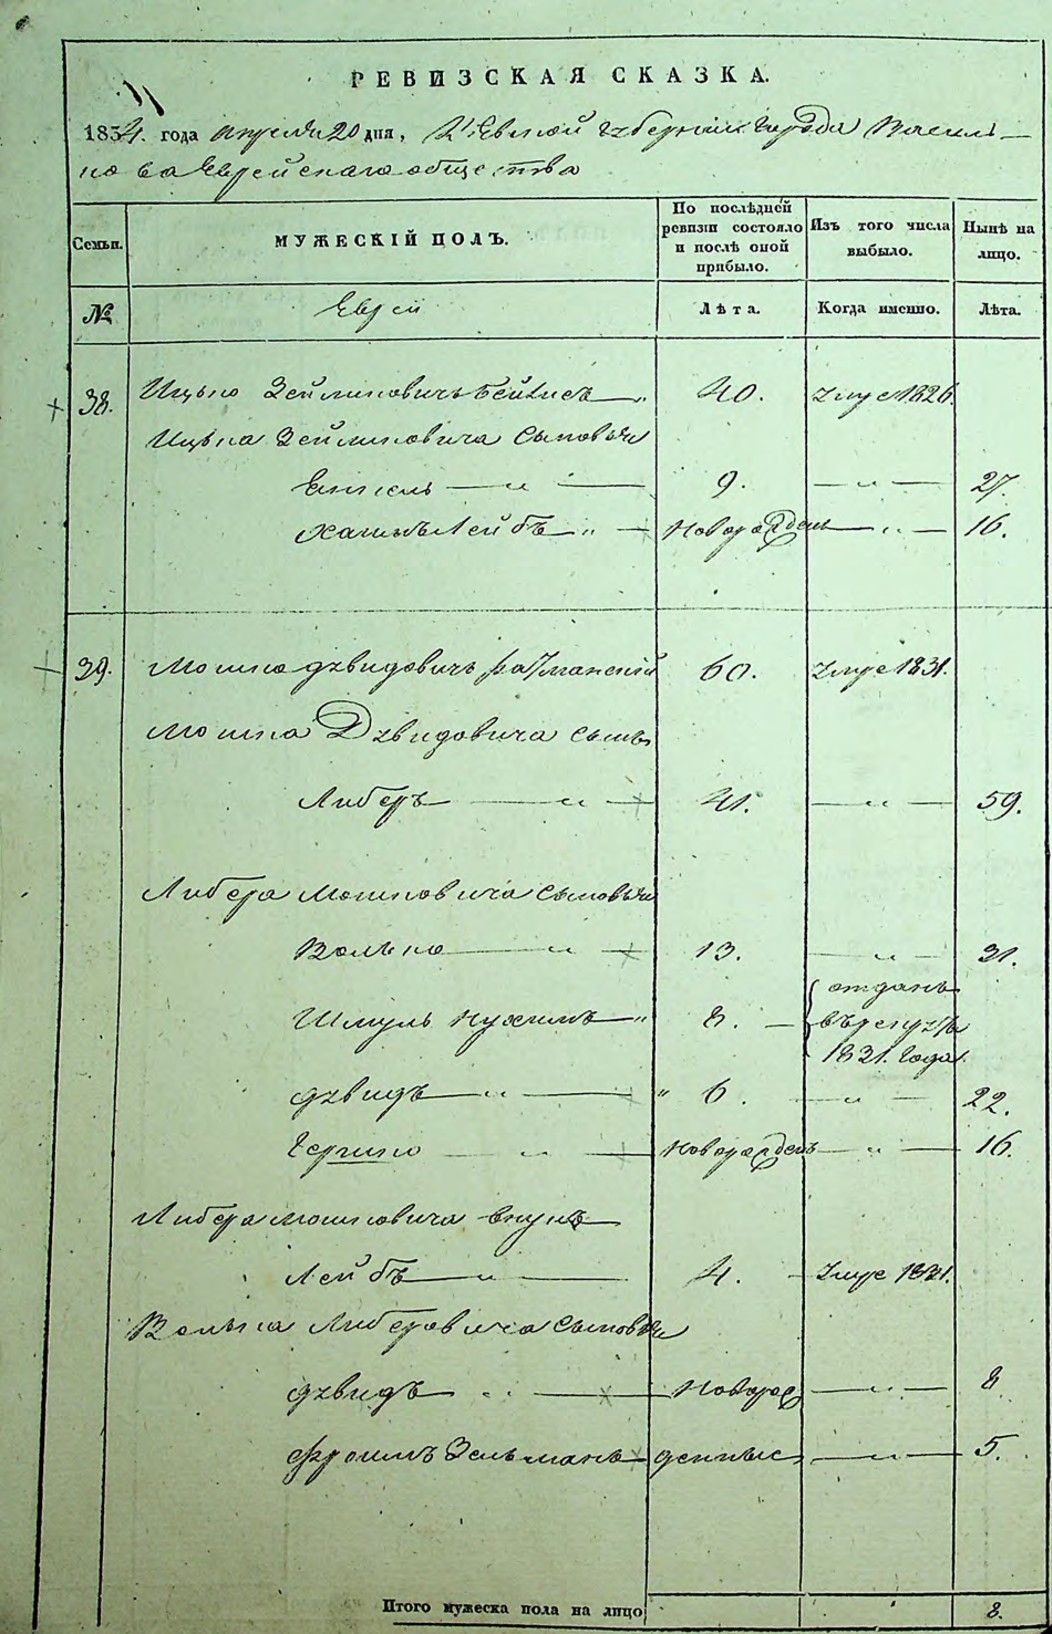 РЕВИЗСКАЯ СКАЗКА.
1834. года апреля 20 дня, Кіевской губерніи города Василь-
кова Еврейскаго общества
Семьи. МУЖЕСКІЙ ПОЛЪ. По послѣдней ревизіи состояло и послѣ оной прибыло. Изъ того числа выбыло. Нынѣ на лицо.
№ Евреи Лѣта. Когда именно. Лѣта.
38. Ицько Зейликовичъ 40. умре 1826.
Ицька Зейликовича сыновья
9. — " — 27.
Хаимъ Лейбъ " — Новорожденъ — " — 16.
39. Мошко Давидовичъ 60. умре 1831.
Мошка Давидовича сынъ
Либеръ — " — 41. — " — 59.
Либера Мошковича сыновья
Волько — " — 13. — " — 31.
Шмуль Нухимъ " 8. — отданъ
въ рекруты
1831. года.
Давидъ — " — " 6. — " — 22.
Новорожденъ — " — 16.
Либера Мошковича внукъ
Лейбъ — " — 4. — умре 1831.
Волька Либеровича сыновья
Давидъ " — Новорож — " — 8
Фроимъ Зельманъ — денные — " — 5.
Итого мужеска пола на лицо 8.